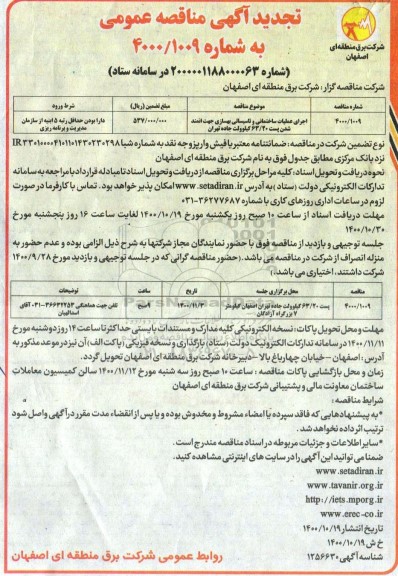 تجدید آگهی مناقصه عمومی
به شماره ۴۰۰۰/۱۰۰۹
(شماره ۲۰۰۰۰۰۱۱۸۸۰۰۰۰۶۳ در سامانه ستاد)
شرکت برق منطقه ای
اصفهان
شرکت مناقصه گزار: شرکت برق منطقه ای اصفهان
شماره مناقصه موضوع مناقصه مبلغ تضمین (ریال) شرط ورود
۴۰۰۰/۱۰۰۹ اجرای عملیات ساختمانی و تاسیساتی بهسازی جهت آنمند شدن پست ۶۳/۲۰ کیلوولت جاده تهران ۵۳۷/۰۰۰/۰۰۰ دارا بودن حداقل رتبه ۵ ابنیه از سازمان مدیریت و برنامه ریزی
نوع تضمین شرکت در مناقصه: ضمانتنامه معتبر یا فیش واریز وجه نقد به شماره شبا IR ۳۳۰۱۰۰۰۰۴۱۰۱۱۰۱۴۳۰۲۳۰۲۹۸
نزد بانک مرکزی مطابق جدول فوق به نام شرکت برق منطقه ای اصفهان
نحوه دریافت و تحویل اسناد: کلیه مراحل برگزاری مناقصه از دریافت و تحویل اسناد تا مبادله قرارداد با مراجعه به سامانه
تدارکات الکترونیکی دولت (ستاد) به آدرس www.setadiran.ir امکان پذیر خواهد بود. تماس با کارفرما در صورت
لزوم در ساعات اداری روزهای کاری با شماره ۳۶۲۷۷۶۸۷-۰۳۱
مهلت دریافت اسناد از ساعت ۱۰ صبح روز یکشنبه مورخ ۱۴۰۰/۱۰/۱۹ لغایت ساعت ۱۶ روز پنجشنبه مورخ
۱۴۰۰/۱۰/۳۰
جلسه توجیهی و بازدید از مناقصه فوق با حضور نمایندگان مجاز شرکتها به شرح ذیل الزامی بوده و عدم حضور به
منزله انصراف از شرکت در مناقصه می باشد. (حضور مناقصه گرانی که در جلسه توجیهی و بازدید مورخ ۱۴۰۰/۹/۲۸
شرکت داشتند، اختیاری می باشد.)
مناقصه محل برگزاری جلسه تاریخ ساعت توضیحات
۴۰۰۰/۱۰۰۹ پست ۶۳/۲۰ کیلوولت جاده تهران اصفهان کیلومتر ۷ بزرگراه آزادگان ۱۴۰۰/۱۱/۳ ۹صبح تلفن جهت هماهنگی ۳۶۶۳۲۲۵۳-۰۳۱ آقای اسدالهیان
مهلت و محل تحویل پاکات: نسخه الکترونیکی کلیه مدارک و مستندات بایستی حداکثر تا ساعت ۱۴ روز دوشنبه مورخ
۱۴۰۰/۱۱/۱۱ در سامانه تدارکات الکترونیک دولت (ستاد) بارگذاری و نسخه فیزیکی (پاکت الف) آن نیز در موعد مذکور به
آدرس: اصفهان - خیابان چهارباغ بالا - دبیرخانه شرکت برق منطقه ای اصفهان تحویل گردد.
زمان و محل بازگشایی پاکات مناقصه: ساعت ۱۰ صبح روز سه شنبه مورخ ۱۴۰۰/۱۱/۱۲ سالن کمیسیون معاملات
ساختمان معاونت مالی و پشتیبانی شرکت برق منطقه ای اصفهان
شرایط مناقصه:
*به پیشنهادهایی که فاقد سپرده یا امضاء مشروط و مخدوش بوده و یا پس از انقضاء مدت مقرر در آگهی واصل شود
ترتیب اثر داده نخواهد شد.
*سایر اطلاعات و جزئیات مربوطه در اسناد مناقصه مندرج است.
ضمنا می توانید این آگهی را در سایت های اینترنتی مشاهده کنید.
www.setadiran.ir
www.tavanir.org.ir
http://iets.mporg.ir
www.erec-co.ir
تاریخ انتشار ۱۴۰۰/۱۰/۱۹
خ ش ۱۴۰۰/۱۰/۱۹
شناسه آگهی ۱۲۵۶۶۳۰
روابط عمومی شرکت برق منطقه ای اصفهان